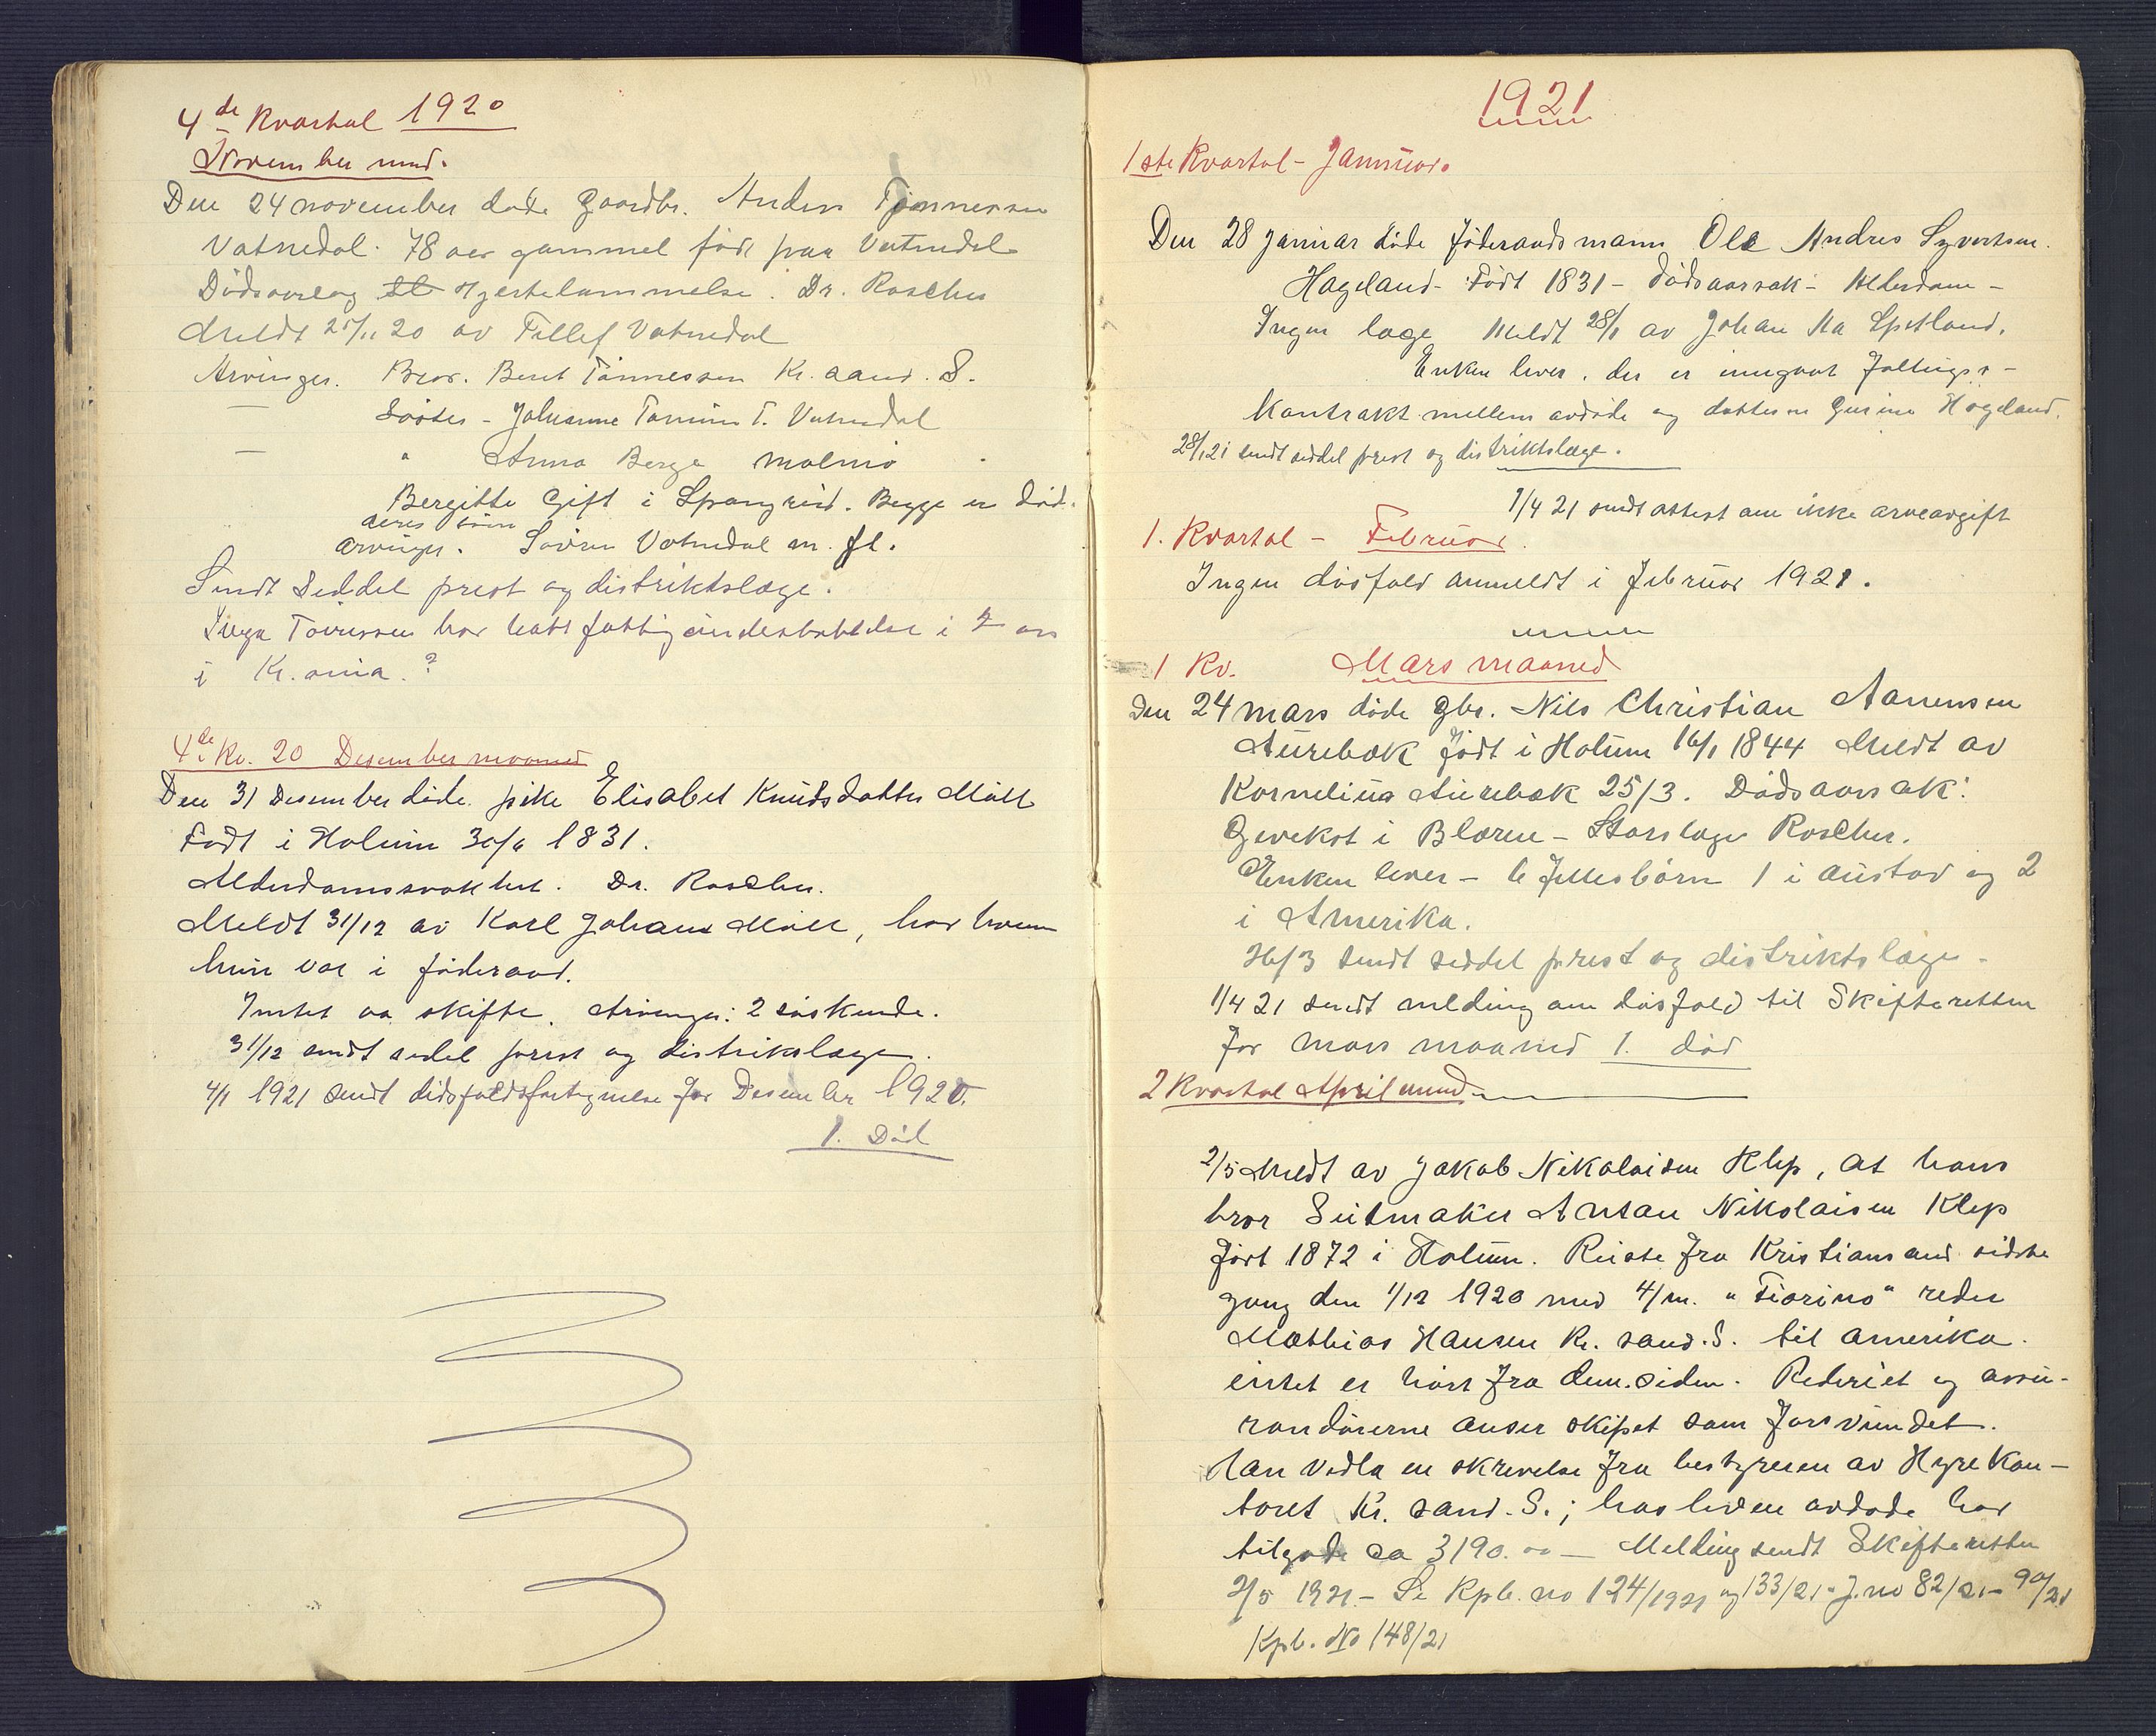 4de Kvartal 1920
November mnd.
Den 24 november døde Gaardbr. Anders Tønnessen
Vatnedal. 78 aar gammel født paa Vatnedal
Dødsaarsag Hjertelammelse. Dr. Roscher
Meldt 25/11 20 av Tellef Vatnedal
Arvinger. Bror. Berit Tønnessen Kr. sand. S.
— Søster - Johanne T. Vatnedal
— " Anna Berge Malmø
Bergitte Gift i Spangreid. Begge er død.
deres søn
arvinger. Søren Vatnedal m. fl.
Sendt Seddel prest og distriktslæge.
Tønnessen har hatt fattigunderstøttelse i 2 aar
i Kr. ania.?
4de Kv. 20 Desember maaned
Den 31 Desember døde pike Elisabet Knudsdatter Møll
Født i Holum 30/6 1831.
Alderdomssvakhet. Dr. Roscher.
Meldt 31/12 av Karl Johan Møll, hos hvem
hun var i føderaad.
Intet aa skifte. Arvinger: 2 søskende.
31/12 sendt sedel prest og distrikslæge.
4/1 1921 sendt dødsfaldsfortegnelse for Desember 1920.
1. Død
1921
1ste Kvartal - Januar.
Den 28 januar døde føderaadsmann Ole Andres Syvertsen
Hageland - Født 1831 - dødsaarsak - Alderdom -
Ingen læge Meldt 28/1 av Johan Spetland.
Enken lever. der er inngaat
Kontrakt mellem avdøde og datteren Gurine Hageland.
28/1 21 sendt seddel prest og distriktslæge.
1/4 21 sendt attest om ikke arveavgift
1. Kvartal - Februar.
Ingen døsfald anmeldt i februar 1921.
1 Kv. Mars maaned
Den 24 mars døde gbr. Nils Christian Aanensen
Aurebæk født i Holum 16/1 1844 Meldt av
Kornelius Aurebæk 25/3. Dødsaarsak:
Gevekst i Blæren - Roscher.
Enken lever - 6 fellesbørn 1 i Austad og 2
i Amerika.
26/3 sendt seddel prest og distriktslæge -
1/4 21 sendt melding om døsfald til Skifteretten
for mars maaned 1. død
2 Kvartal April mnd.
2/5 Meldt av Jakob Nikolaisen Klep, at hans
bror Seilmaker Antan Nikolaisen Klep
født 1872 i Holum. Reiste fra Kristiansand sidste
gang den 1/12 1920 med 4/m. "Fiorino" reder
Mathias Hansen Kr. sand. S. til amerika.
intet er hørt fra dem. siden. Rederiet og assu-
randørerne anser skipet som forsvundet.
Han vedla en skrivelse fra bestyreren av Hyrekon-
toret Kr. sand. S.; avdøde har
tilgode ca 3190.00 — Melding sendt Skifteretten
2/5 1921. - Se Kpb. no 124/1921 og 133/21 - J. no 82/21 - 90/21
Kpb. No 148/21